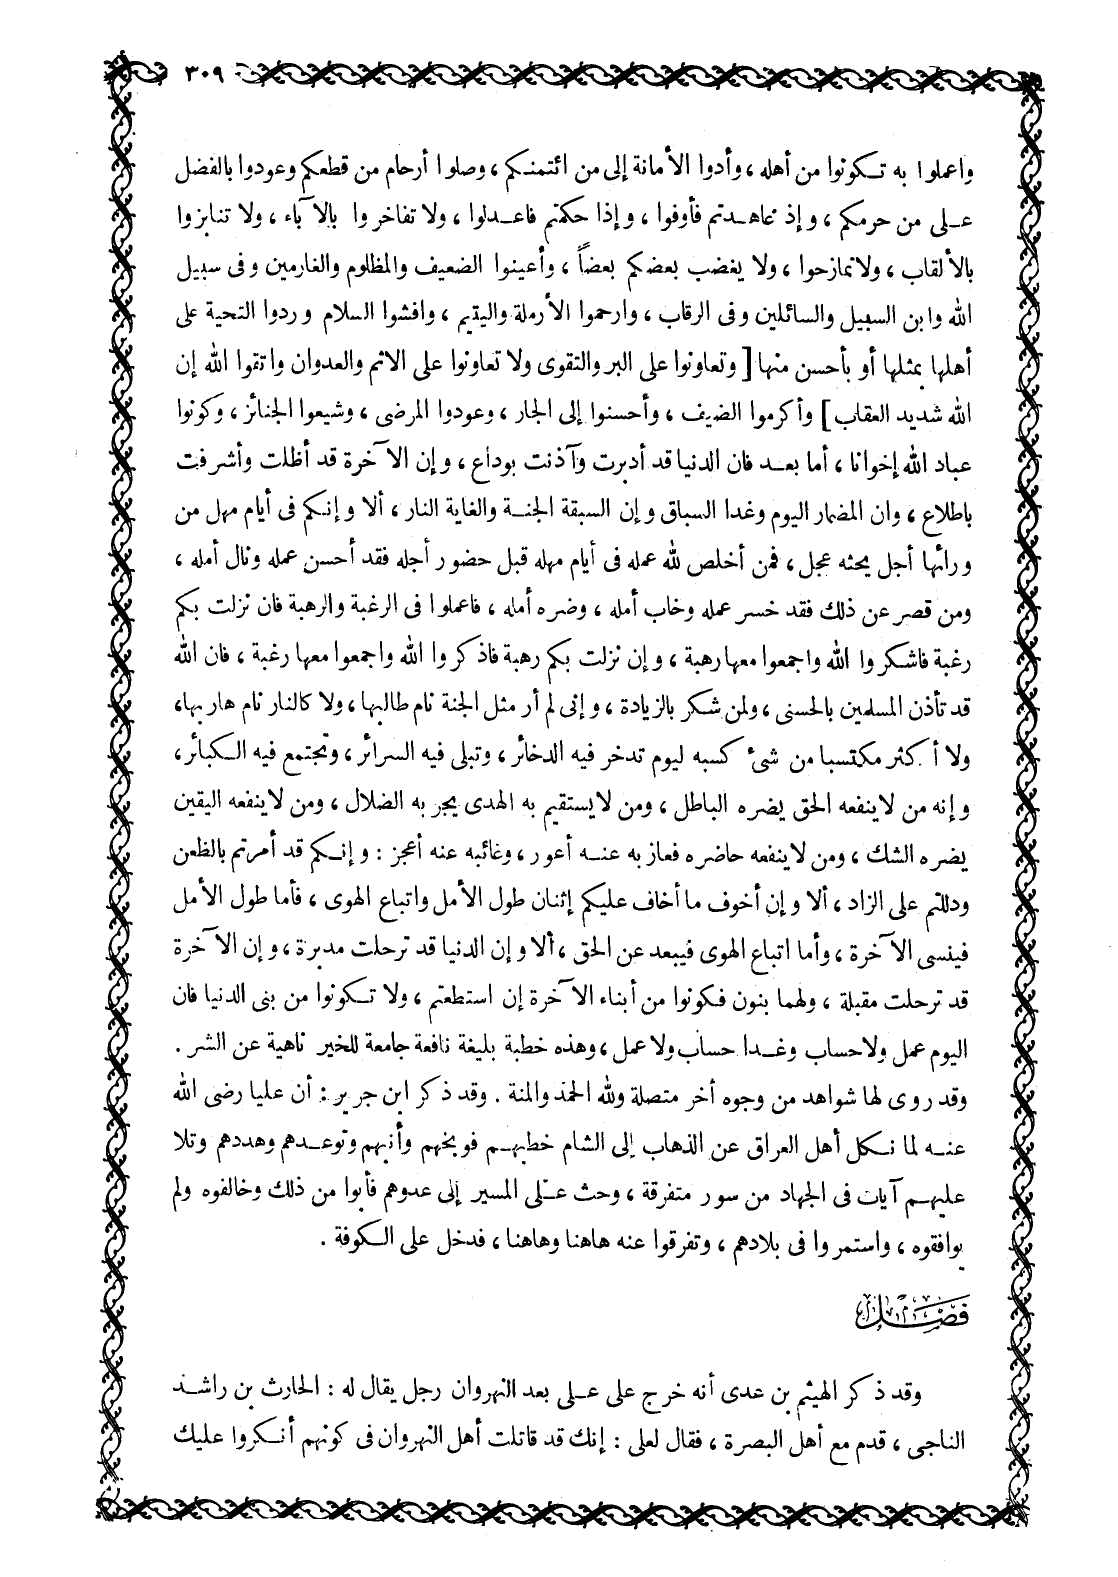 ٣٠٩
واعملوا به تكونوا من أهله ، وأدوا الأمانة إلى من ائتمنكم ، وصلوا أرحام من قطعكم وعودوا بالفضل
على من حرمكم ، وإذ عاهدتم فأوفوا ، وإذا حكمتم فاعدلوا ، ولا تفاخروا بالآباء ، ولا تنابزوا
بالألقاب ، ولا تمازحوا ، ولا يغضب بعضكم بعضاً ، وأعينوا الضعيف والمظلوم والغارمين وفى سبيل
الله وابن السبيل والسائلين وفى الرقاب ، وارحموا الأرملة واليتيم ، وافشوا السلام وردوا التحية على
أهلها بمثلها أو بأحسن منها [ وتعاونوا على البر والتقوى ولا تعاونوا على الاثم والعدوان واتقوا الله إن
الله شديد العقاب ] وأكرموا الضيف ، وأحسنوا إلى الجار ، وعودوا المرضى ، وشيعوا الجنائز ، وكونوا
عباد الله إخوانا ، أما بعد فان الدنيا قد أدبرت وآذنت بوداع ، وإن الآخرة قد أظلت وأشرفت
باطلاع ، وان المضمار اليوم وغدا السباق وإن السبقة الجنة والغاية النار ، ألا وإنكم فى أيام مهل من
ورائها أجل يحثه عجل ، فمن أخلص لله عمله فى أيام مهله قبل حضور أجله فقد أحسن عمله ونال أمله ،
ومن قصر عن ذلك فقد خسر عمله وخاب أمله ، وضره أمله ، فاعملوا فى الرغبة والرهبة فان نزلت بكم
رغبة فاشكروا الله واجمعوا معها رهبة ، وإن نزلت بكم رهبة فاذكروا الله واجمعوا معها رغبة ، فان الله
قد تأذن المسلمين بالحسنى ، ولمن شكر بالزيادة ، وإنى لم أر مثل الجنة نام طالبها ، ولا كالنار نام هاربها ،
ولا أكثر مكتسبا من شئ كسبه ليوم تدخر فيه الدخائر ، وتبلى فيه السرائر ، وتجتمع فيه الكبائر ،
وإنه من لا ينفعه الحق يضره الباطل ، ومن لا يستقيم به الهدى يجر به الضلال ، ومن لا ينفعه اليقين
يضره الشك ، ومن لا ينفعه حاضره فعازبه عنه أعور ، وغائبه عنه أعجز : وإنكم قد أمرتم بالظعن
ودللتم على الزاد ، ألا وإن أخوف ما أخاف عليكم إثنان طول الأمل واتباع الهوى ، فأما طول الأمل
فينسى الآخرة ، وأما اتباع الهوى فيبعد عن الحق ، ألا وإن الدنيا قد ترحلت مدبرة ، وإن الآخرة
قد ترحلت مقبلة ، ولهما بنون فكونوا من أبناء الآخرة إن استطعتم ، ولا تكونوا من بنى الدنيا فان
اليوم عمل ولا حساب وغدا حساب ولا عمل ، وهذه خطبة بليغة نافعة جامعة للخير ناهية عن الشر .
وقد روى لها شواهد من وجوه أخر متصلة ولله الحمد والمنة . وقد ذكر ابن جرير : أن عليا رضى الله
عنه لما نكل أهل العراق عن الذهاب إلى الشام خطبهم فوبخهم وأنبهم وتوعدهم وهددهم وتلا
عليهم آيات فى الجهاد من سور متفرقة ، وحث على المسير إلى عدوهم فأبوا من ذلك وخالفوه ولم
يوافقوه ، واستمروا فى بلادهم ، وتفرقوا عنه هاهنا وهاهنا ، فدخل على الكوفة .
فصل
وقد ذكر الهيثم بن عدى أنه خرج على على بعد النهروان رجل يقال له : الحارث بن راشد
الناجى ، قدم مع أهل البصرة ، فقال لعلى : إنك قد قاتلت أهل النهروان فى كونهم أنكروا عليك